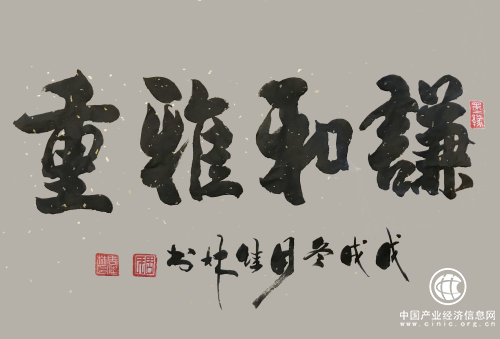 謙和雅重
戊戌冬月佳林书
中国产业经济信息网
www.cinic.org.cn